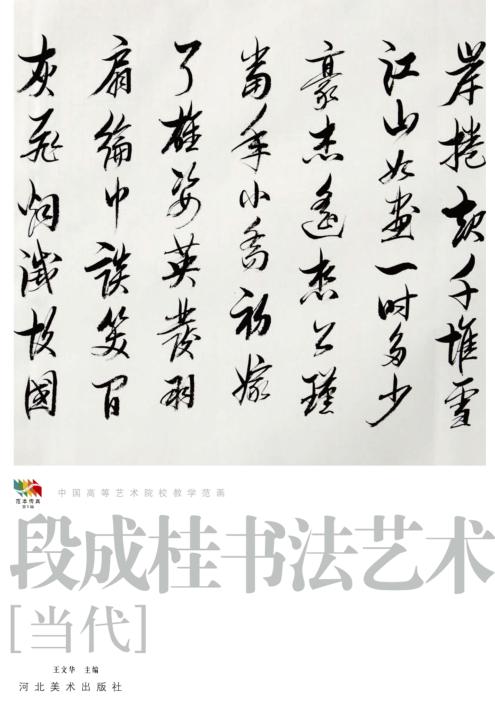 岸捲起千堆雪
江山如畫一时多少
豪杰遙想公瑾
當年小喬初嫁
了雄姿英發羽
扇綸巾談笑間
灰飛烟滅故國
范本传真
中国高等艺术院校教学范画
段成桂书法艺术
[当代]
王文华 主编
河北美术出版社